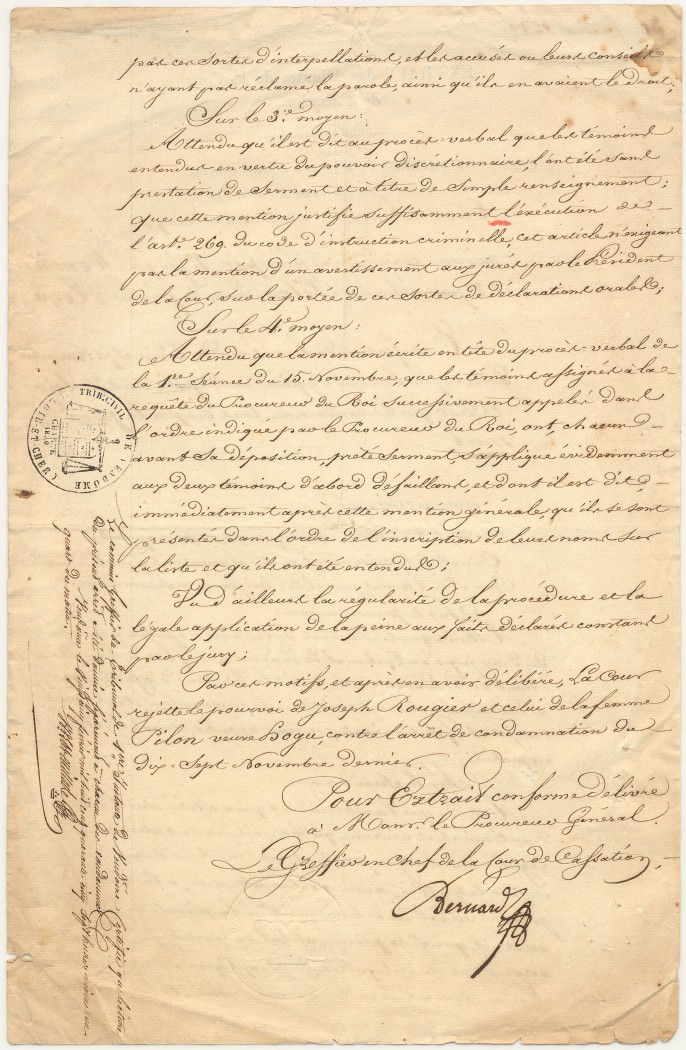 par ces sortes d'interpellations, et les accusés ou leurs conseils
n'ayant pas réclamé la parole, ainsi qu'ils en avaient le droit;
Sur le 3.e moyen:
Attendu qu'il est dit au procès-verbal que les témoins
entendus en vertu du pouvoir discrétionnaire, l'ont été sans
prestation de serment et à titre de simple renseignement;
que cette mention justifie suffisamment l'exécution de
l'art. 269. du code d'instruction criminelle, cet article n'exigeant
pas la mention d'un avertissement aux jurés par le Président
de la Cour, sur la portée de ces sortes de déclarations orales;
Sur le 4.e moyen:
Attendu que la mention écrite en tête du procès-verbal de
la 1.re Séance du 15. Novembre, que les témoins assignés à la
requête du Procureur du Roi successivement appelés dans
l'ordre indiqué par le Procureur du Roi, ont, chacun
avant sa déposition, prêté serment, s'applique évidemment
aux deux témoins d'abord défaillans, et dont il est dit,
immédiatement après cette mention générale, qu'ils se sont
présentés dans l'ordre de l'inscription de leurs noms sur
la liste et qu'ils ont été entendus;
Vu d'ailleurs la régularité de la procédure et la
légale application de la peine aux faits déclarés constans
par le jury;
Par ces motifs, et après en avoir délibéré, La Cour
rejette le pourvoi de Joseph Rougier et celui de la femme
Pilon veuve Hogu, contre l'arrêt de condamnation du
dix-Sept Novembre dernier.
Pour Extrait conforme délivré
à Monsr. le Procureur Général.
Le Greffier en chef de la Cour de Cassation,
Bernard
TRIB. CIVIL DE VENDOME (LOIR-ET-CHER)
CHARTE 1830
Le commis greffier du tribunal de 1.re instance de Vendôme certifie que lecture
du présent arrêt a été donnée séparément à chacun des condamnés
Vendôme le janvier mil huit cent quarante cinq sept heures moins un
quart du matin.